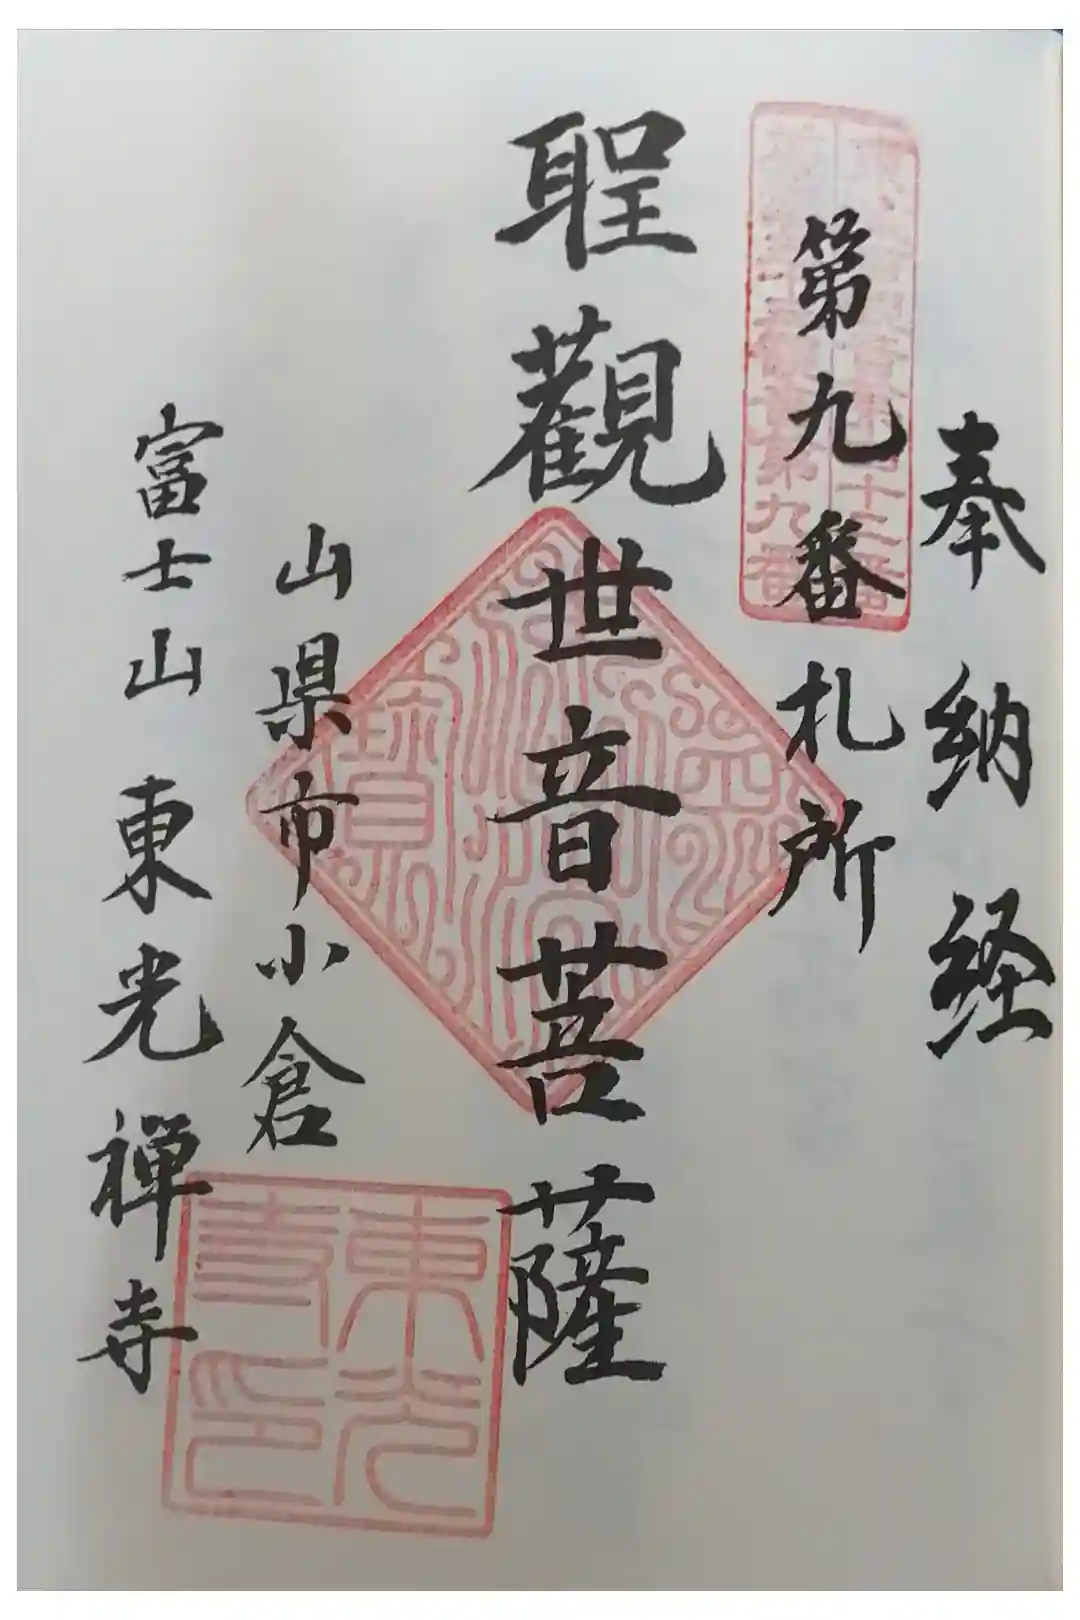 奉納経
第九番札所
聖觀世音菩薩
山県市小倉
富士山 東光禅寺
第九番
十二番
東光
寺印